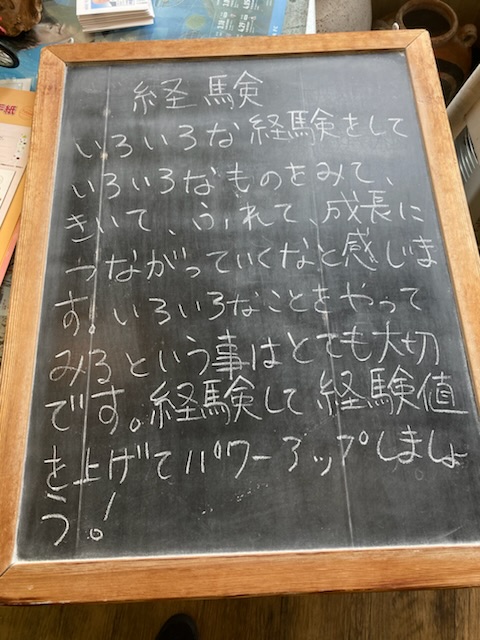 経験
いろいろな経験をして
いろいろなものをみて、
きいて、ふれて、成長に
つながっていくなと感じま
す。いろいろなことをやって
みるという事はとても大切
です。経験して経験値
を上げてパワーアップしましょ
う!